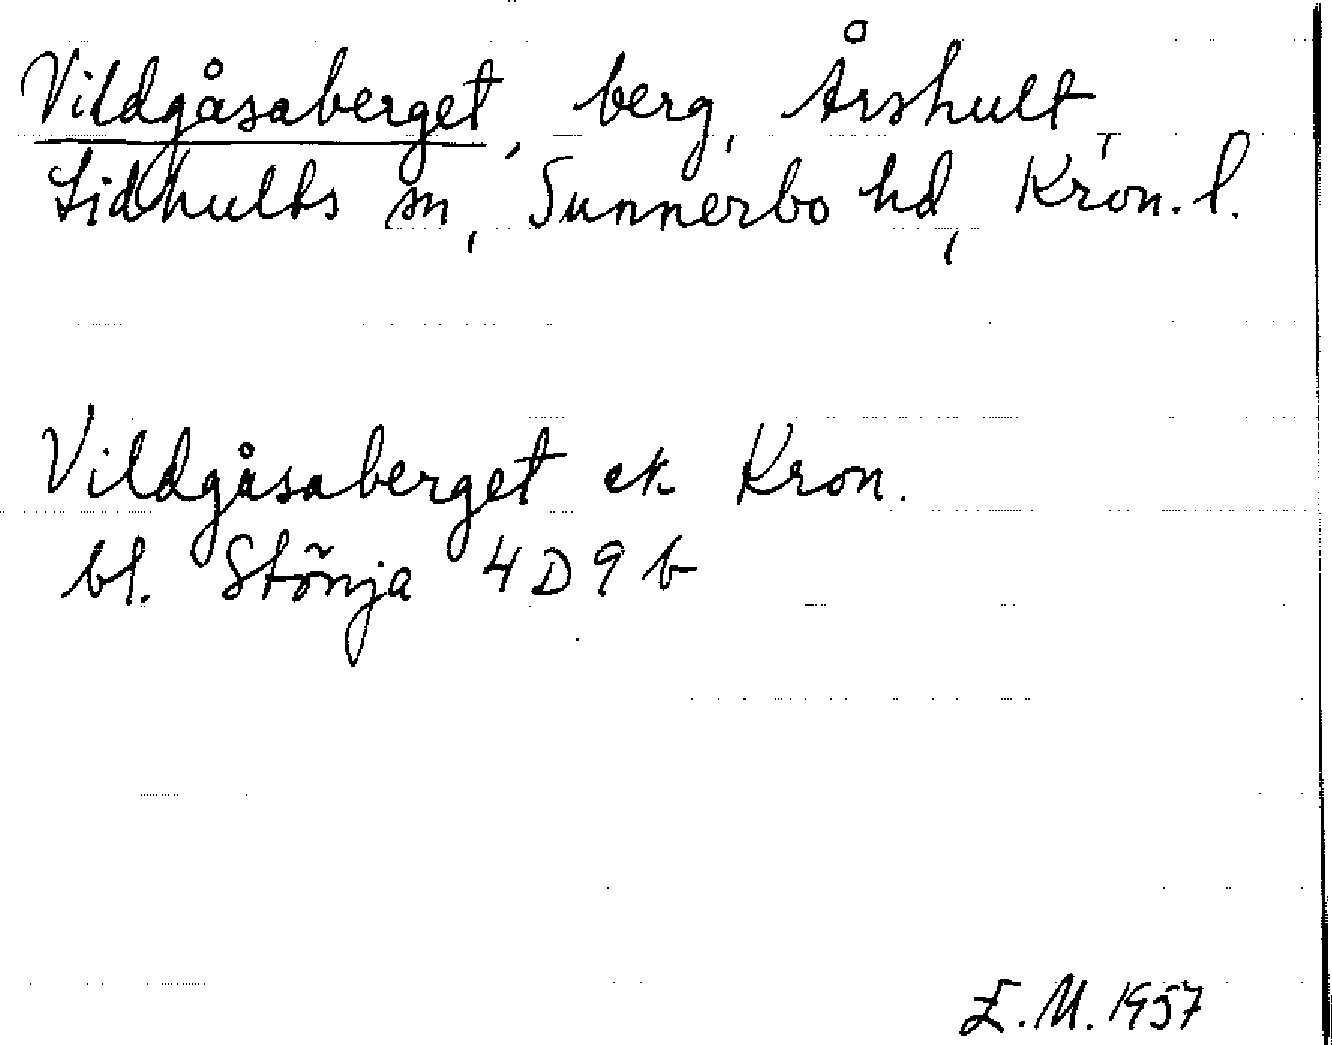 Vildgåsaberget, berg, Årshult,
Lidhults sn, Sunnerbo hd, Kron. l.
Vildgåsaberget ek Kron.
bl. Stönja 4D9b
E.M. 1957